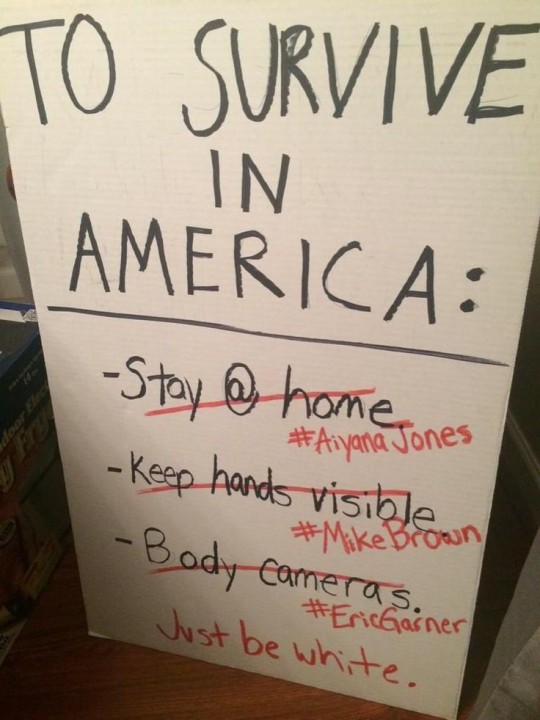 TO SURVIVE
IN
AMERICA:
-Stay @ home
#Aiyana Jones
-Keep hands visible
#MikeBrown
-Body cameras.
#EricGarner
Just be white.